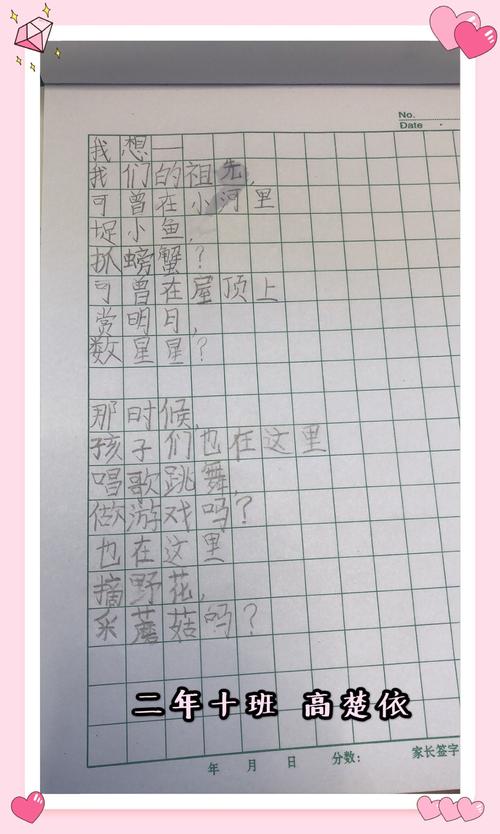 No.
Date ·
我想——
我们的祖先,
可曾在小河里
捉小鱼,
抓螃蟹?
可曾在屋顶上
赏明月,
数星星?
那时候,
孩子们也在这里
唱歌跳舞,
做游戏吗?
也在这里
摘野花,
采蘑菇吗?
二年十班 高楚依
年 月 日 分数: 家长签字